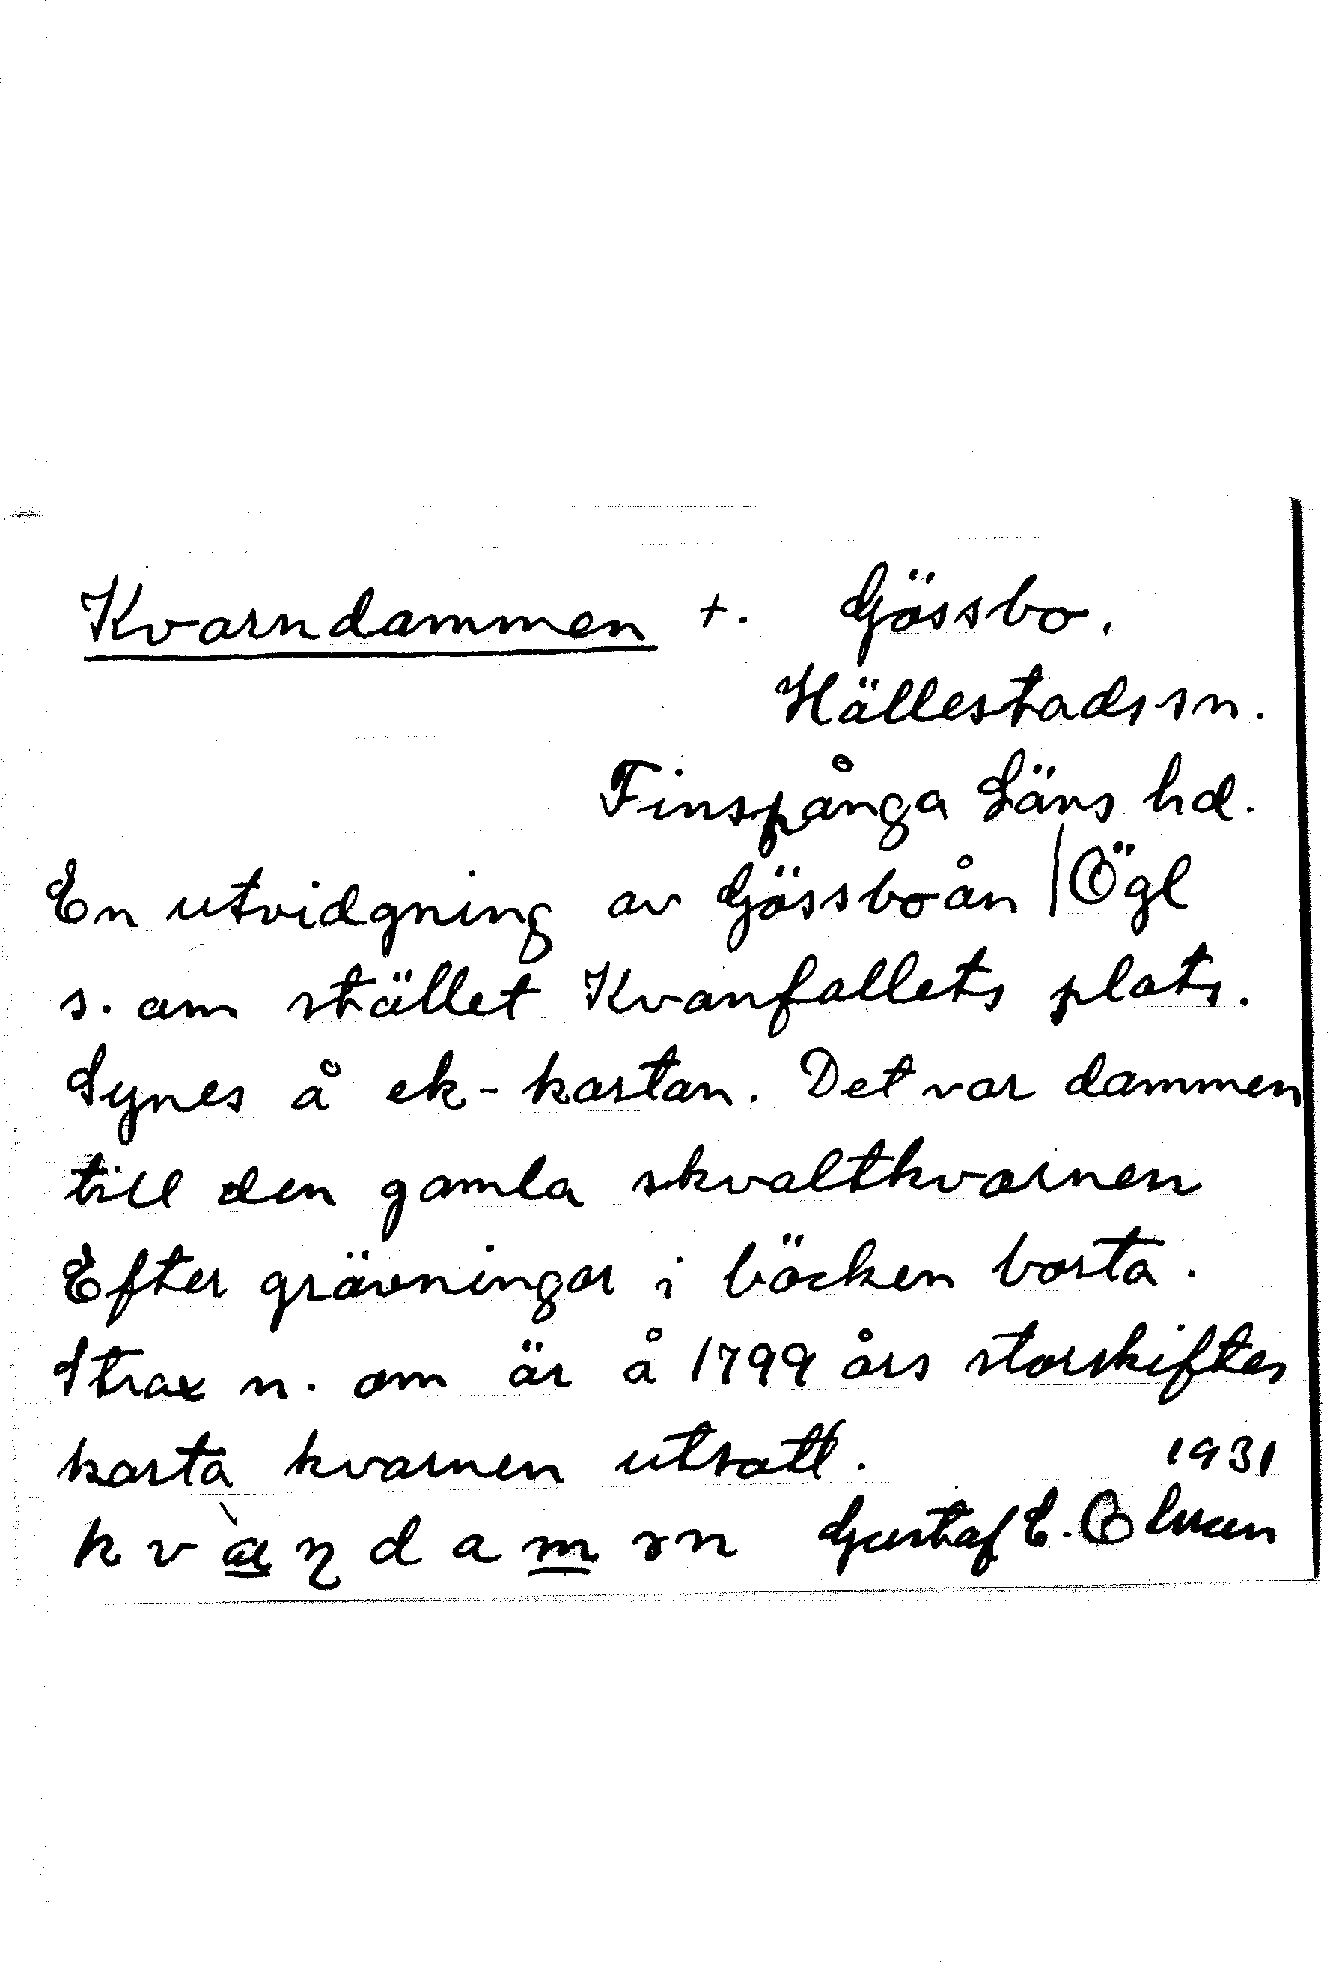 Kvarndammen +. Gössbo.
Hällestads sn.
Finspånga Läns hd.
En utvidgning av Gössboån / Ögl
s. om stället Kvanfallets plats.
Synes å ek-kartan. Det var dammen
till den gamla skvaltkvarnen
Efter grävningar i bäcken borta.
Strax n. om är å 1799 års storskiftes
karta kvarnen utsatt. 1931
Gustaf E.